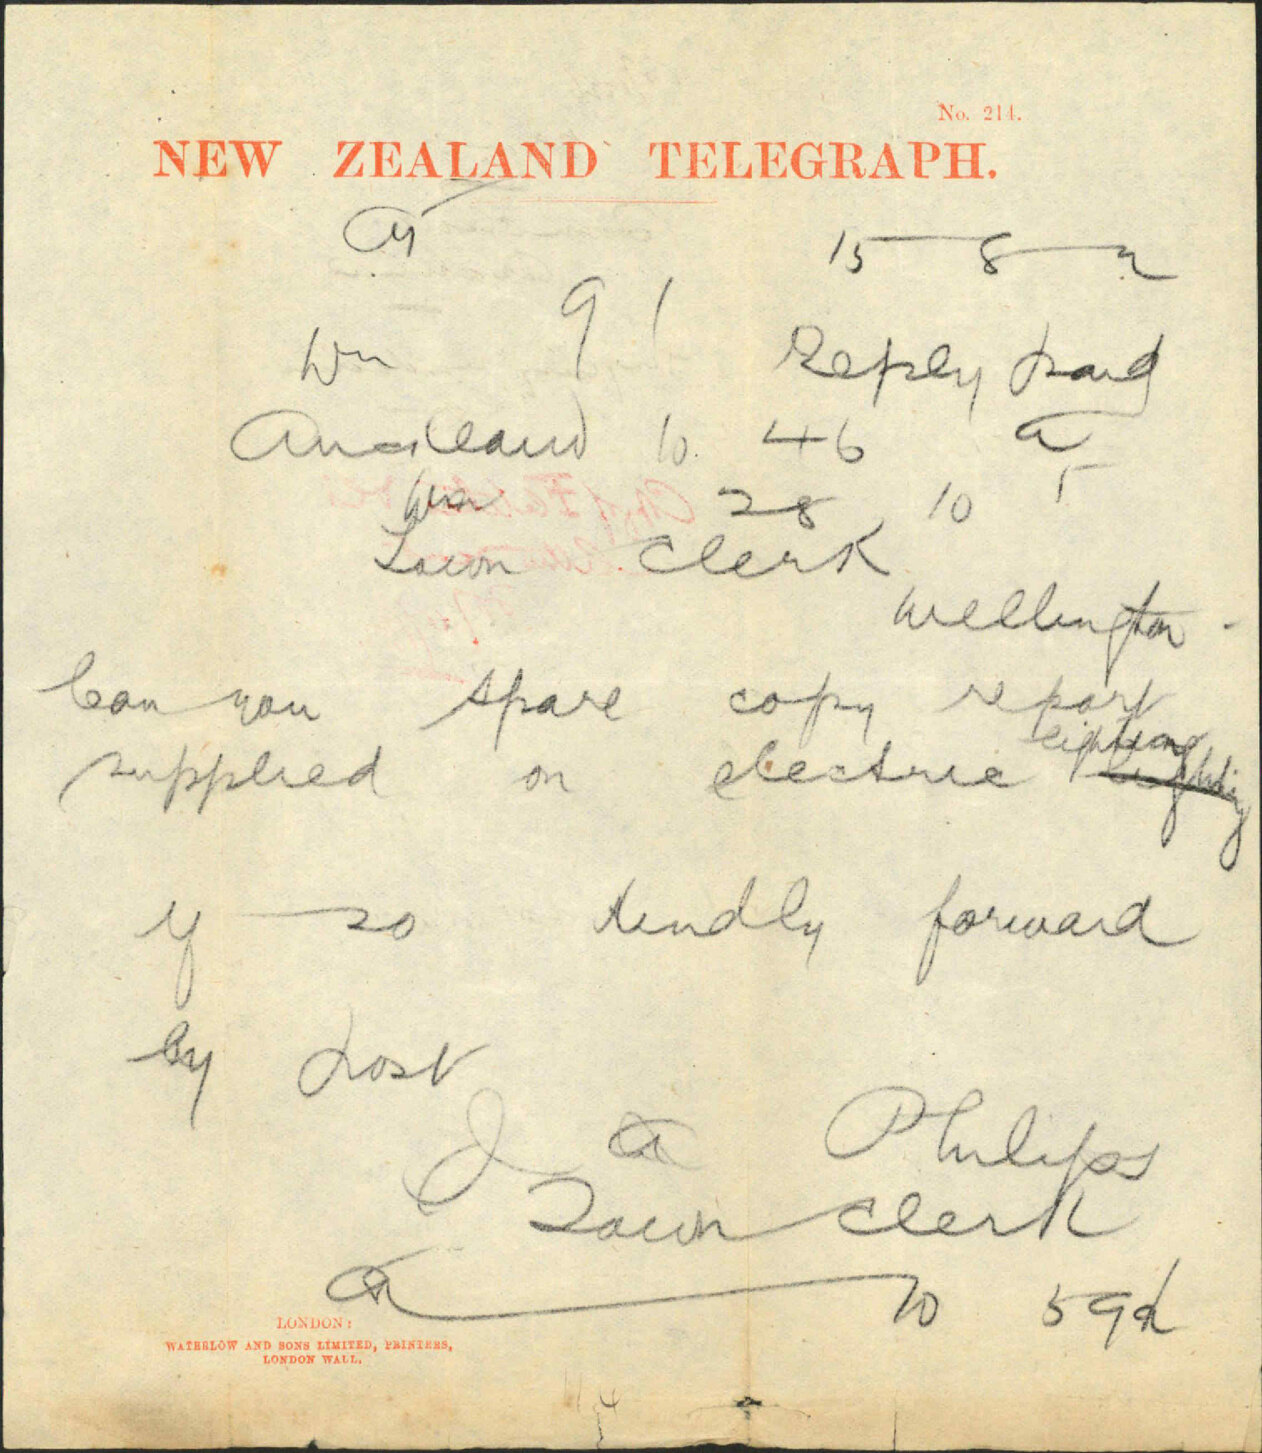 No. 214.
NEW ZEALAND TELEGRAPH.
15 8 2
91
Wn Reply paid
Auckland 10. 46 a
28 10 5
Town Clerk
Wellington -
Can you spare copy report
supplied on electric lighting lighting
if so kindly forward
by post
J a Philips
Town Clerk
10 59
LONDON:
WATERLOW AND SONS LIMITED, PRINTERS,
LONDON WALL.